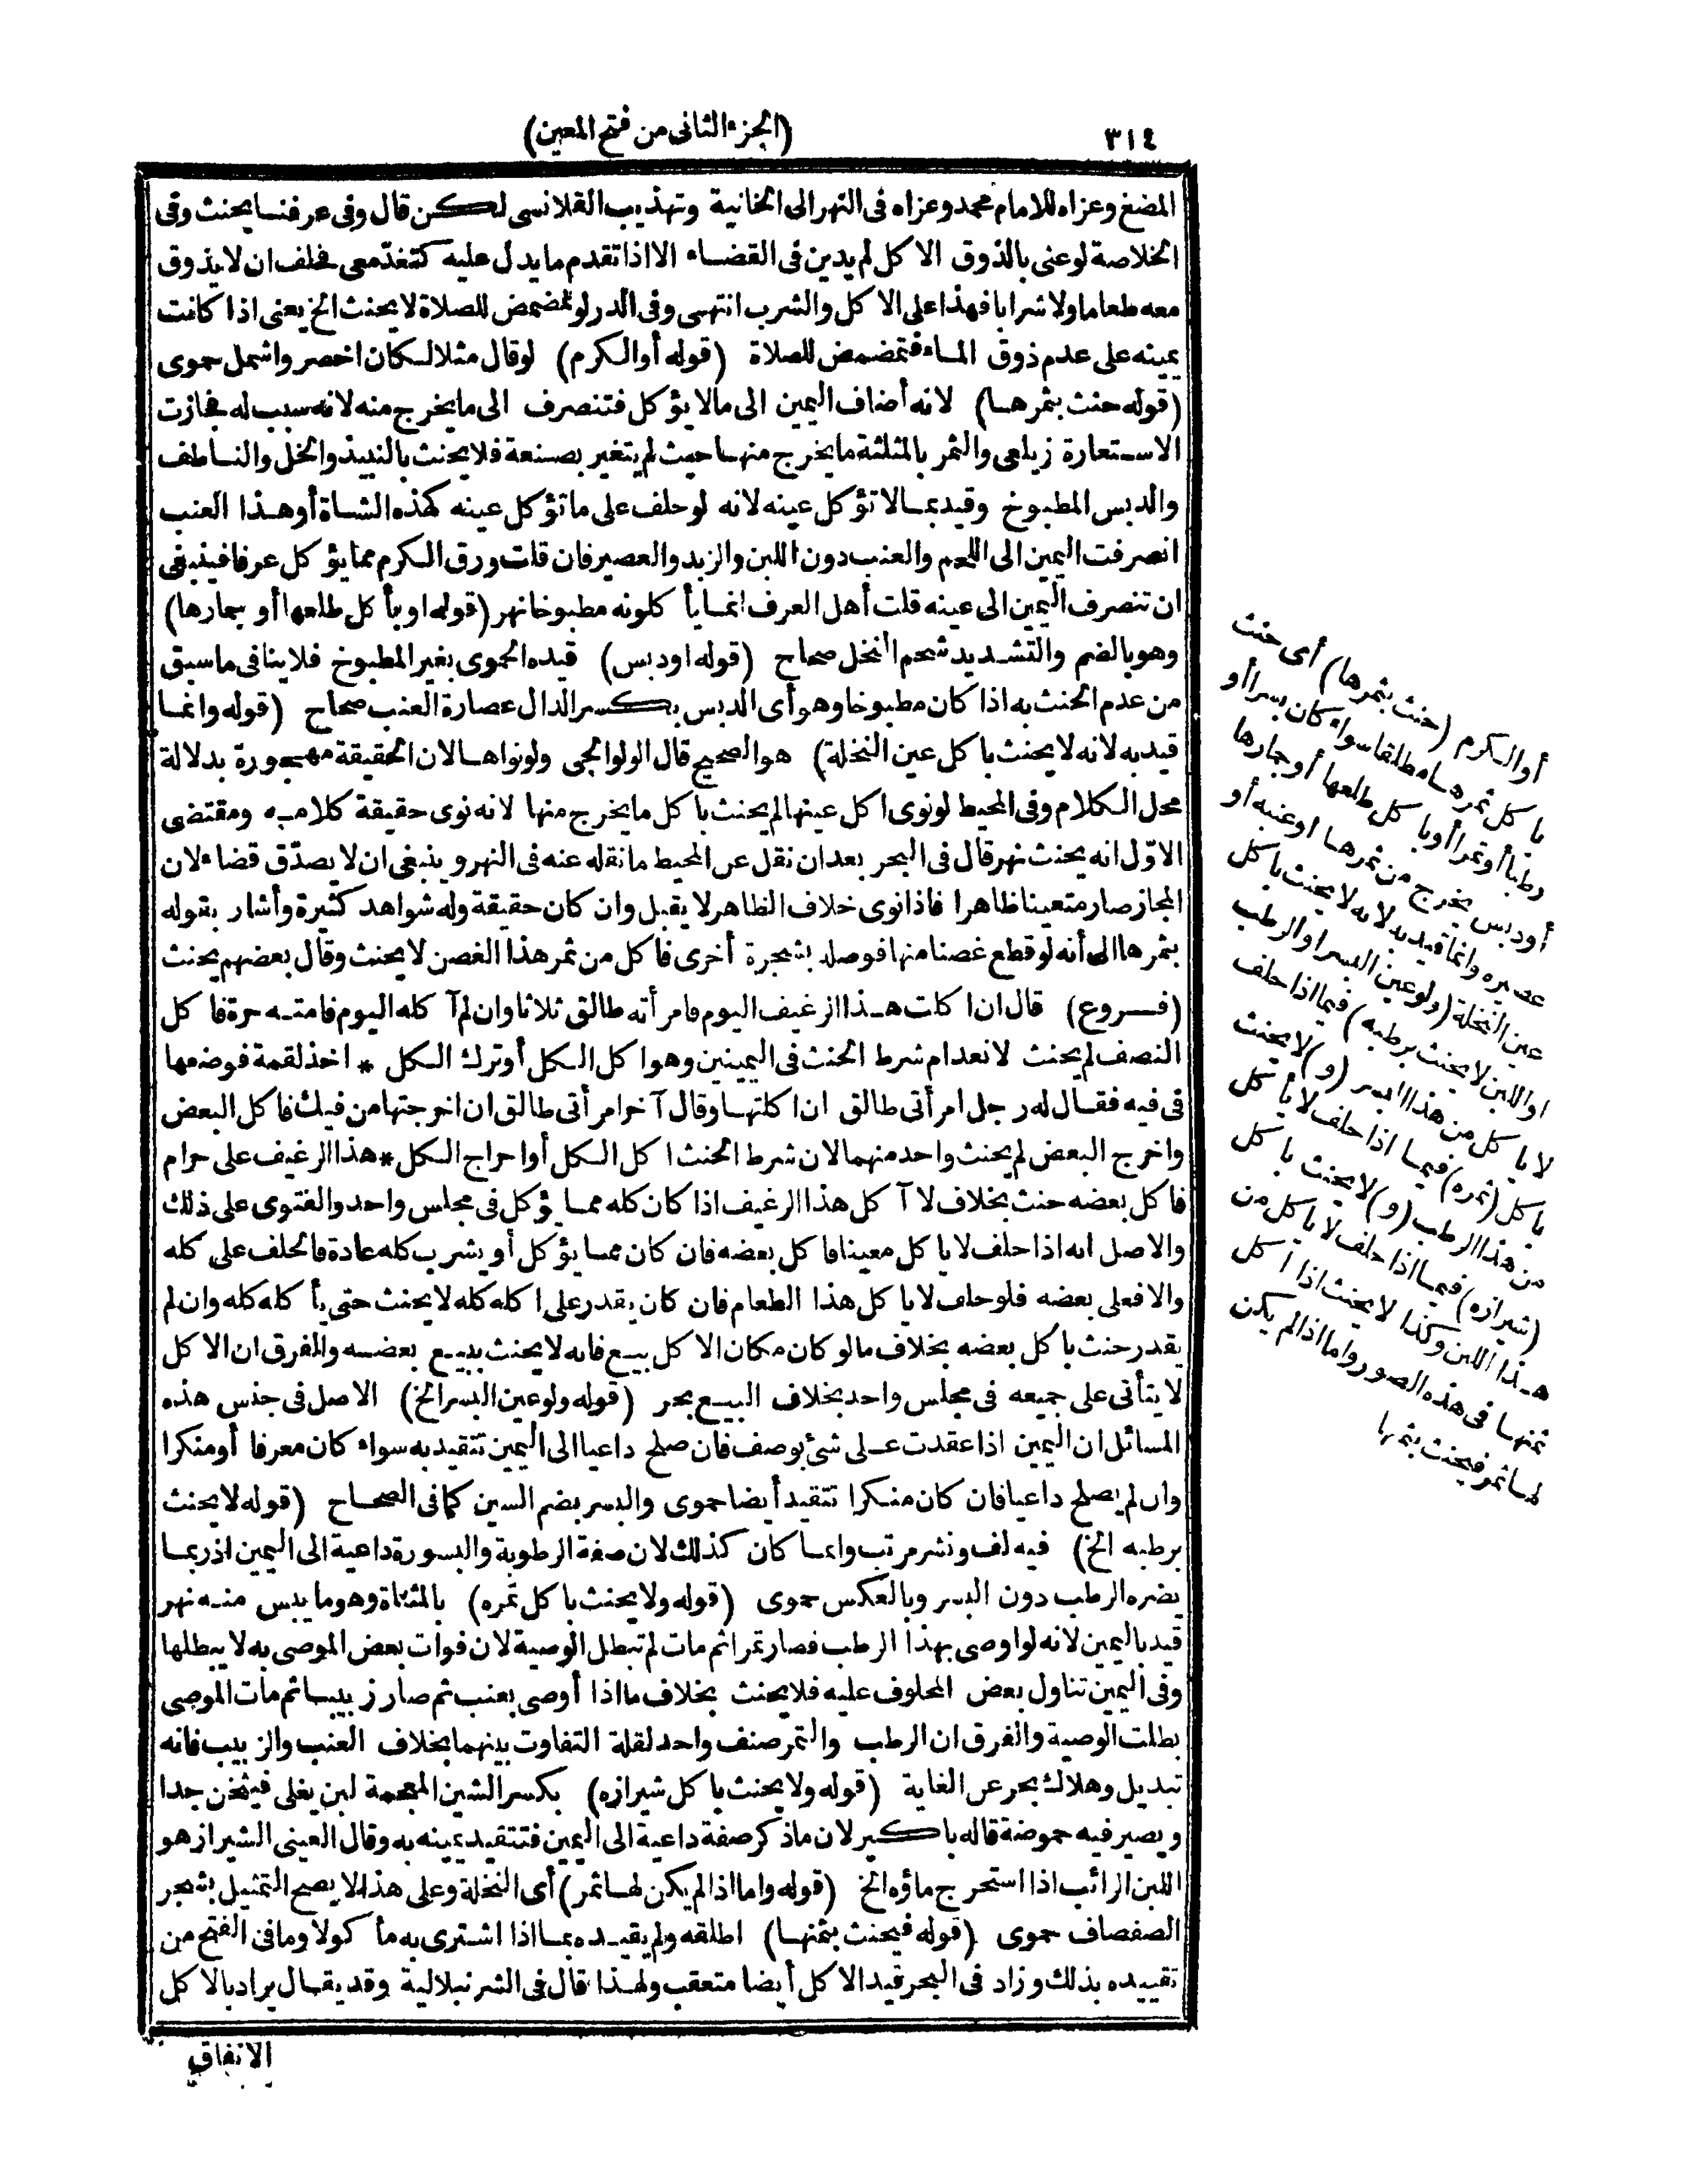 ٣١٤
(الجزء الثانى من فتح المعين)
المضغ وعزاه للامام محمد وعزاه فى النهر الى الخانية وتهذيب القلانسى لكن قال وفى عرفنا يحنث وفى
الخلاصة لوعنى بالذوق الاكل لم يدين فى القضاء الا اذا تقدم ما يدل عليه كتغدّ معى فحلف ان لا يذوق
معه طعاما ولا شرابا فهذا على الاكل والشرب انتهى وفى الدر لو تمضمض للصلاة لا يحنث الخ يعنى اذا كانت
يمينه على عدم ذوق الماء فتمضمض للصلاة (قوله أو الكرم) لو قال مثلا لكان اخصر واشمل حموى
(قوله حنث بثمرها) لانه أضاف اليمين الى مالا يؤكل فتنصرف الى ما يخرج منه لانه سبب له فجازت
الاستعارة زيلعى والثمر بالمثلثة ما يخرج منها حيث لم يتغير بصنعة فلا يحنث بالنبيذ والخل والناطف
والدبس المطبوخ وقيد بمالا تؤكل عينه لانه لو حلف على ما تؤكل عينه كهذه الشاة أو هذا العنب
انصرفت اليمين الى اللحم والعنب دون اللبن والزبد والعصير فان قلت ورق الكرم مما يؤكل عرفا فينبغى
ان تنصرف اليمين الى عينه قلت أهل العرف انما يأكلونه مطبوخا نهر (قوله او يأكل طلعها أو جمارها)
وهو بالضم والتشديد شحم النخل صحاح (قوله او دبس) قيده الحموى بغير المطبوخ فلا ينافى ما سبق
من عدم الحنث به اذا كان مطبوخا وهو أى الدبس بكسر الدال عصارة العنب صحاح (قوله وانما
قيد به لانه لا يحنث باكل عين النخلة) هو الصحيح قال الولوالجى ولو نواها لان الحقيقة مهجورة بدلالة
محل الكلام وفى المحيط لو نوى اكل عينها لم يحنث باكل ما يخرج منها لانه نوى حقيقة كلامه ومقتضى
الاوّل انه يحنث نهر قال فى البحر بعد ان نقل عن المحيط ما نقله عنه فى النهر وينبغى ان لا يصدّق قضاء لان
المجاز صار متعينا ظاهرا فاذا نوى خلاف الظاهر لا يقبل وان كان حقيقة وله شواهد كثيرة وأشار بقوله
بثمرها الى أنه لو قطع غصنا منها فوصله بشجرة أخرى فاكل من ثمر هذا الغصن لا يحنث وقال بعضهم يحنث
(فروع) قال ان اكلت هذا الرغيف اليوم فامرأته طالق ثلاثا وان لم آكله اليوم فامته حرة فاكل
النصف لم يحنث لانعدام شرط الحنث فى اليمينين وهو اكل الكل أو ترك الكل * اخذ لقمة فوضعها
فى فيه فقال له رجل امرأتى طالق ان اكلتها وقال آخر امرأتى طالق ان اخرجتها من فيك فاكل البعض
واخرج البعض لم يحنث واحد منهما لان شرط الحنث اكل الكل أو اخراج الكل * هذا الرغيف على حرام
فاكل بعضه حنث بخلاف لا آكل هذا الرغيف اذا كان كله مما يؤكل فى مجلس واحد والفتوى على ذلك
والاصل انه اذا حلف لا ياكل معينا فاكل بعضه فان كان مما يؤكل أو يشرب كله عادة فالحلف على كله
والا فعلى بعضه فلو حلف لا ياكل هذا الطعام فان كان يقدر على اكله كله لا يحنث حتى يأكله كله وان لم
يقدر حنث باكل بعضه بخلاف ما لو كان مكان الاكل بيع فانه لا يحنث ببيع بعضه والفرق ان الاكل
لا يتأتى على جميعه فى مجلس واحد بخلاف البيع بحر (قوله ولو عين البسر الخ) الاصل فى جنس هذه
المسائل ان اليمين اذا عقدت على شئ بوصف فان صلح داعيا الى اليمين تتقيد به سواء كان معرفا أو منكرا
وان لم يصلح داعيا فان كان منكرا تتقيد أيضا حموى والبسر بضم السين كما فى الصحاح (قوله لا يحنث
برطبه الخ) فيه لف ونشر مرتب وانما كان كذلك لان صفة الرطوبة والبسورة داعية الى اليمين اذ ربما
يضره الرطب دون البسر وبالعكس حموى (قوله ولا يحنث باكل تمره) بالمثناة وهو ما يبس منه نهر
قيد باليمين لانه لو اوصى بهذا الرطب فصار تمرا ثم مات لم تبطل الوصية لان فوات بعض الموصى به لا يبطلها
وفى اليمين تناول بعض المحلوف عليه فلا يحنث بخلاف ما اذا أوصى بعنب ثم صار زبيبا ثم مات الموصى
بطلت الوصية والفرق ان الرطب والتمر صنف واحد لقلة التفاوت بينهما بخلاف العنب والزبيب فانه
تبديل وهلاك بحر عن الغاية (قوله ولا يحنث باكل شيرازه) بكسر الشين المعجمة لبن يغلى فيثخن جدا
ويصير فيه حموضة قاله باكير لان ما ذكر صفة داعية الى اليمين فتتقيد يمينه به وقال العينى الشيراز هو
اللبن الرائب اذا استخرج ماؤه الخ (قوله واما اذا لم يكن لها ثمر) أى النخلة وعلى هذا لا يصح التمثيل بشجر
الصفصاف حموى (قوله فيحنث بثمنها) اطلقه ولم يقيده بما اذا اشترى به مأكولا وما فى الفتح من
تقييده بذلك وزاد فى البحر قيد الاكل أيضا متعقب ولهذا قال فى الشرنبلالية وقد يقال يراد بالاكل
الانفاق
أو الكرم (حنث بثمرها) أى حنث
باكل ثمرها مطلقا سواء كان بسرا أو
رطبا أو تمرا أو ياكل طلعها أو جمارها
أو دبس يخرج من ثمرها او عنبه أو
عصيره وانما قيد به لانه لا يحنث باكل
عين النخلة (ولو عين البسر او الرطب
او اللبن لا يحنث برطبه) فيما اذا حلف
لا ياكل من هذا البسر (و) لا يحنث
باكل (تمره) فيما اذا حلف لا يأكل
من هذا الرطب (و) لا يحنث باكل
(شيرازه) فيما اذا حلف لا ياكل من
هذا اللبن وكذا لا يحنث اذا اكل
ثمنها فى هذه الصور واما اذا لم يكن
لها ثمر فيحنث بثمنها